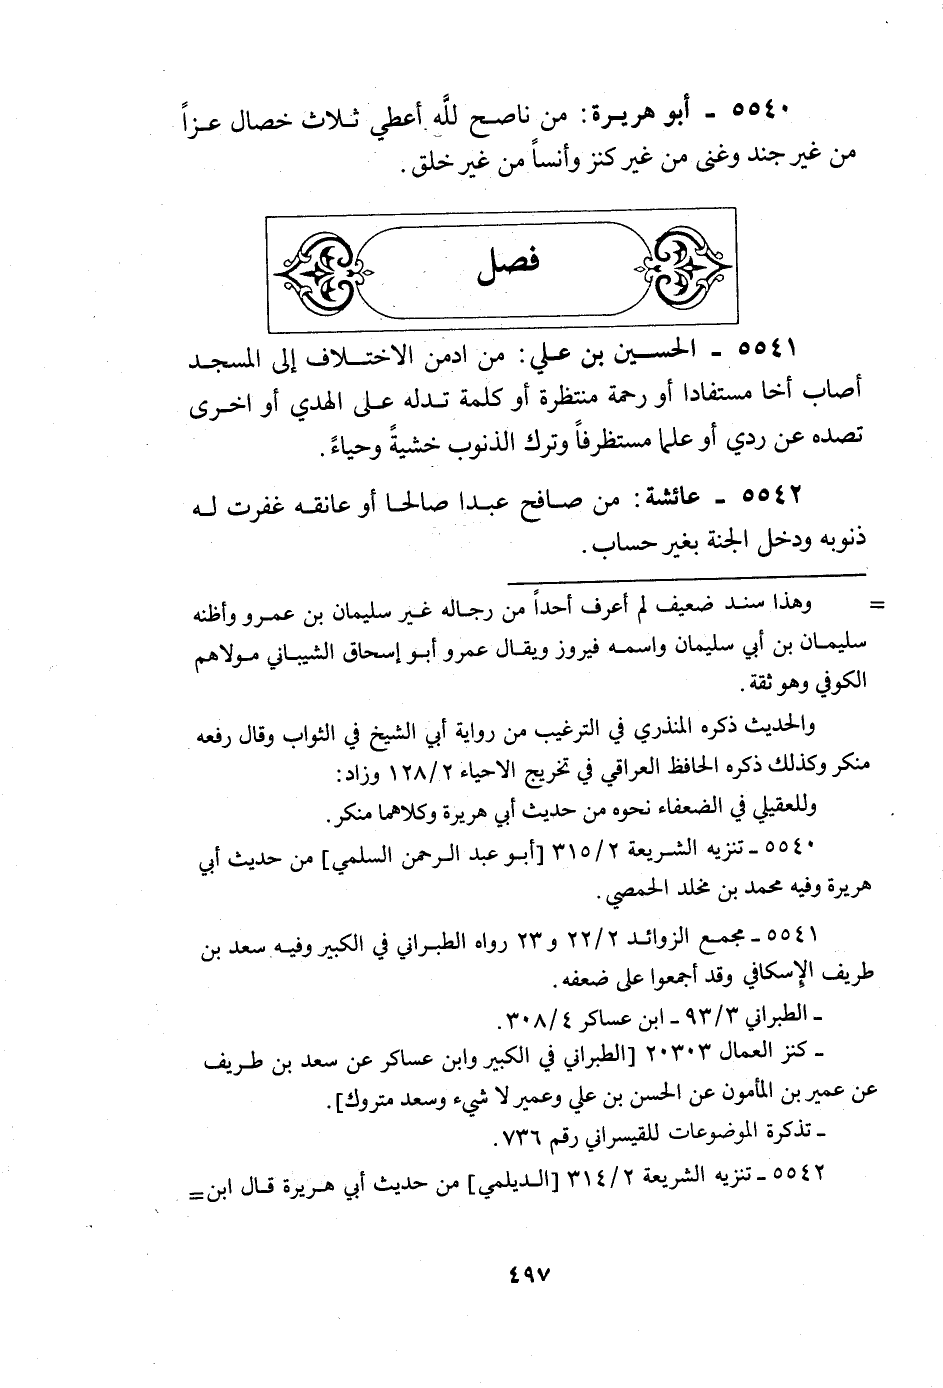 ٥٥٤٠ ـ أبو هريرة: من ناصح للَّه أعطي ثلاث خصال عزاً
من غير جند وغنى من غير كنز وأنساً من غير خلق.
فصل
٥٥٤١ ـ الحسين بن علي: من ادمن الاختلاف إلى المسجد
أصاب أخا مستفادا أو رحمة منتظرة أو كلمة تدله على الهدي أو اخرى
تصده عن ردي أو علما مستظرفاً وترك الذنوب خشيةً وحياءً.
٥٥٤٢ ـ عائشة: من صافح عبدا صالحا أو عانقه غفرت له
ذنوبه ودخل الجنة بغير حساب.
= وهذا سند ضعيف لم أعرف أحداً من رجاله غير سليمان بن عمرو وأظنه
سليمان بن أبي سليمان واسمه فيروز ويقال عمرو أبو إسحاق الشيباني مولاهم
الكوفي وهو ثقة.
والحديث ذكره المنذري في الترغيب من رواية أبي الشيخ في الثواب وقال رفعه
منكر وكذلك ذكره الحافظ العراقي في تخريج الاحياء ١٢٨/٢ وزاد:
وللعقيلي في الضعفاء نحوه من حديث أبي هريرة وكلاهما منكر.
٥٥٤٠ ـ تنزيه الشريعة ٣١٥/٢ [أبو عبد الرحمن السلمي] من حديث أبي
هريرة وفيه محمد بن مخلد الحمصي.
٥٥٤١ ـ مجمع الزوائد ٢٢/٢ و٢٣ رواه الطبراني في الكبير وفيه سعد بن
طريف الإسكافي وقد أجمعوا على ضعفه.
ـ الطبراني ٩٣/٣ ـ ابن عساكر ٣٠٨/٤.
ـ كنز العمال ٢٠٣٠٣ [الطبراني في الكبير وابن عساكر عن سعد بن طريف
عن عمير بن المأمون عن الحسن بن علي وعمير لا شيء وسعد متروك].
ـ تذكرة الموضوعات للقيسراني رقم ٧٣٦.
٥٥٤٢ ـ تنزيه الشريعة ٣١٤/٢ [الديلمي] من حديث أبي هريرة قال ابن=
٤٩٧